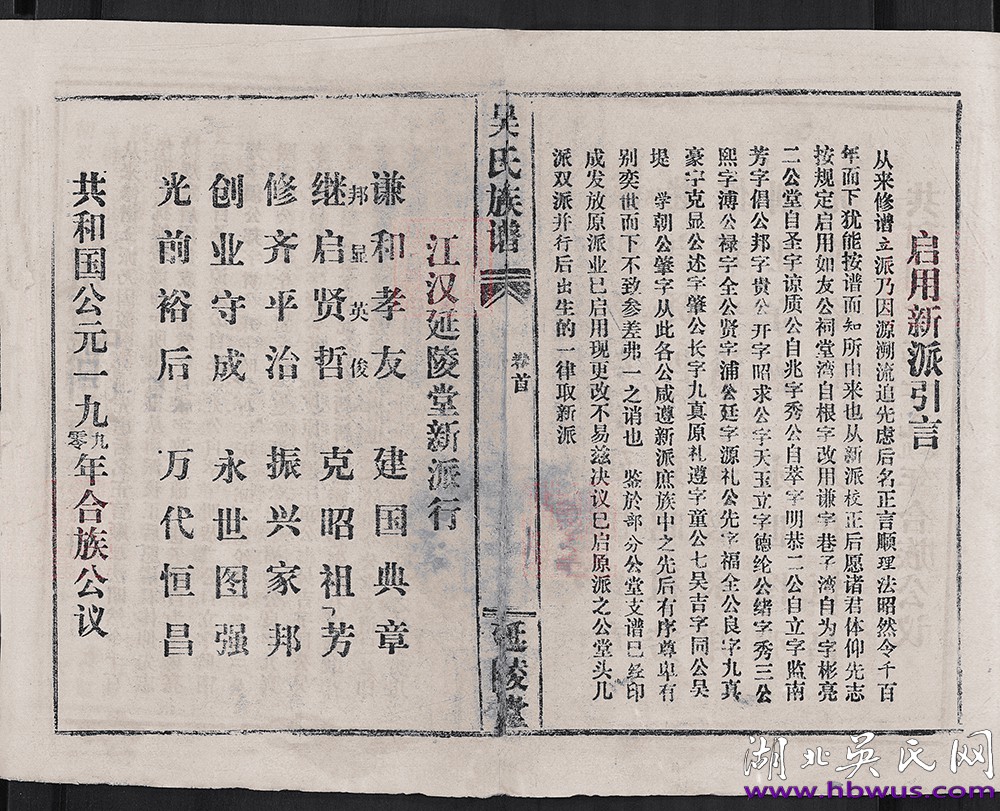 启用新派引言
从来修谱立派乃因源溯流追先虑后名正言顺理法昭然令千百
年而下犹能按谱而知所由来也从新派校正后愿诸君体仰先志
按规定启用如友公祠堂湾自根字改用谦字巷子湾自为字彬亮
二公堂自圣字谅质公自兆字秀公自萃字明恭二公自立字监南
芳字倡公邦字贵公开字昭求公字天玉立字德纶公绪字秀三公
熙字溥公禄字全公贤字浦公廷字源礼公先字福全公良字九真
豪字克显公述字肇公长字九真原礼遵字童公七吴吉字同公吴
堤 学朝公肇字从此各公咸遵新派庶族中之先后有序尊卑有
别奕世而下不致参差弗一之诮也 鉴於部分公堂支谱已经印
成发放原派业已启用现更改不易兹决议已启原派之公堂头几
派双派并行后出生的一律取新派
吴氏族谱
卷首
延陵堂
江汉延陵堂新派行
谦和孝友 建国典章
邦显英俊
继启贤哲 克昭祖芳
修齐平治 振兴家邦
创业守成 永世图强
光前裕后 万代恒昌
共和国公元一九九零年合族公议
湖北吴氏网
www.hbwus.com